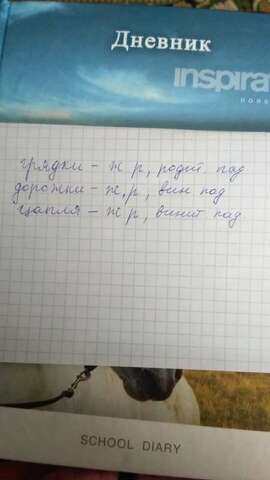 Дневник
inspira
грядки – ж. р, родит. пад
дорожки – ж, р, вин пад
цапля – ж р, винит пад
SCHOOL DIARY